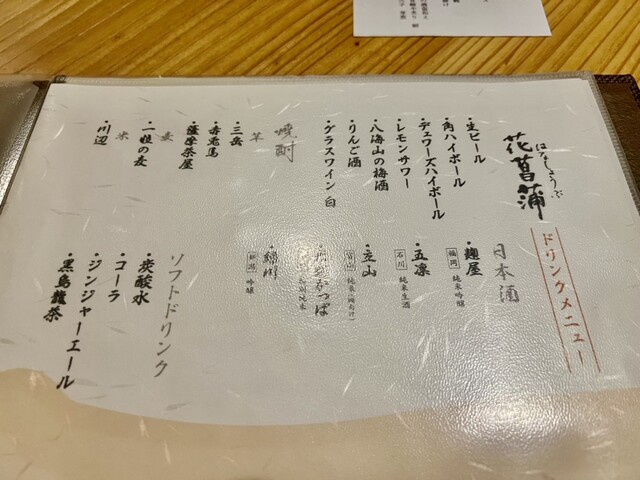 花菖蒲
はなしょうぶ
ドリンクメニュー
・生ビール
・角ハイボール
・デュワーズハイボール
・レモンサワー
・八海山の梅酒
・りんご酒
・グラスワイン 白
焼酎
芋
・三岳
・赤兎馬
・薩摩茶屋
麦
・一粒の麦
米
・川辺
日本酒
・麹屋
福岡 純米吟醸
・五凛
石川 純米生酒
・立山
富山
・緑川
新潟 吟醸
ソフトドリンク
・炭酸水
・コーラ
・ジンジャーエール
・黒烏龍茶